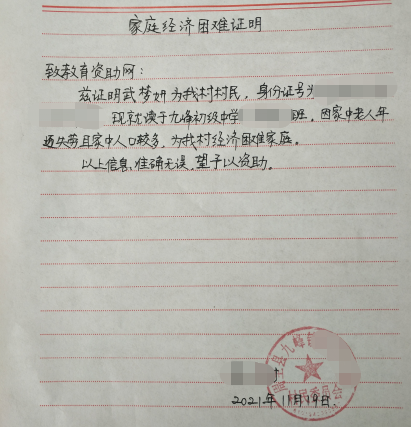 家庭经济困难证明
致教育资助网：
兹证明武梦妍为我村村民，身份证号为
现就读于九峰初级中学 班。因家中老人年
迈失劳且家中人口较多，为我村经济困难家庭。
以上信息准确无误，望予以资助。
县九峰
村民委员会
2021年11月19日.